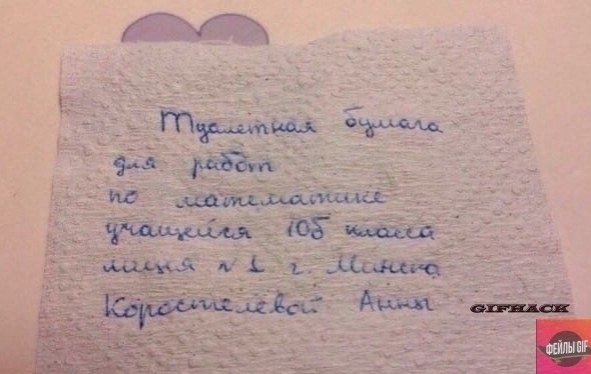 Туалетная бумага
для работ
по математике
учащейся 10б класса
лицея №1 г. Минска
Коростелевой Анны
GIFHACK
ФЕЙЛЫ GIF